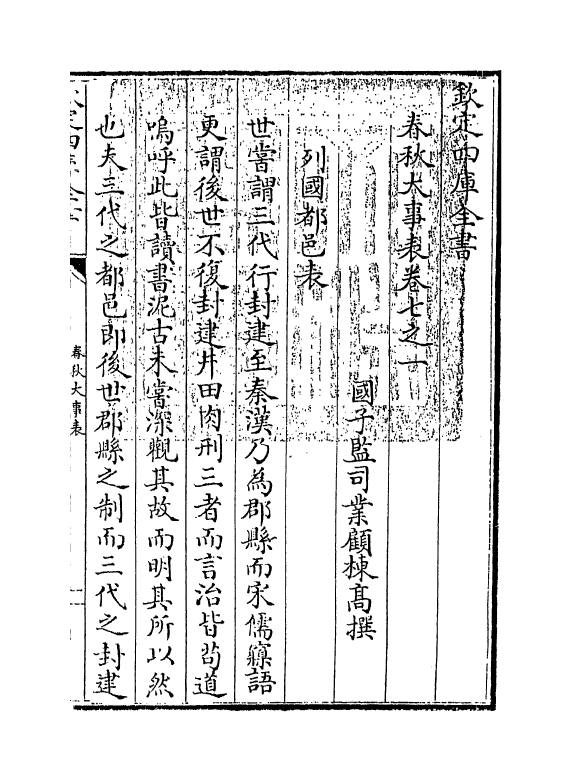 欽定四庫全書
春秋大事表卷七之一
國子監司業顧棟髙撰
列國都邑表
世嘗謂三代行封建至秦漢乃為郡縣而宋儒寱語
更謂後世不復封建井田肉刑三者而言治皆茍道
嗚呼此皆讀書泥古未嘗深觀其故而明其所以然
也夫三代之都邑即後世郡縣之制而三代之封建
春秋大事表